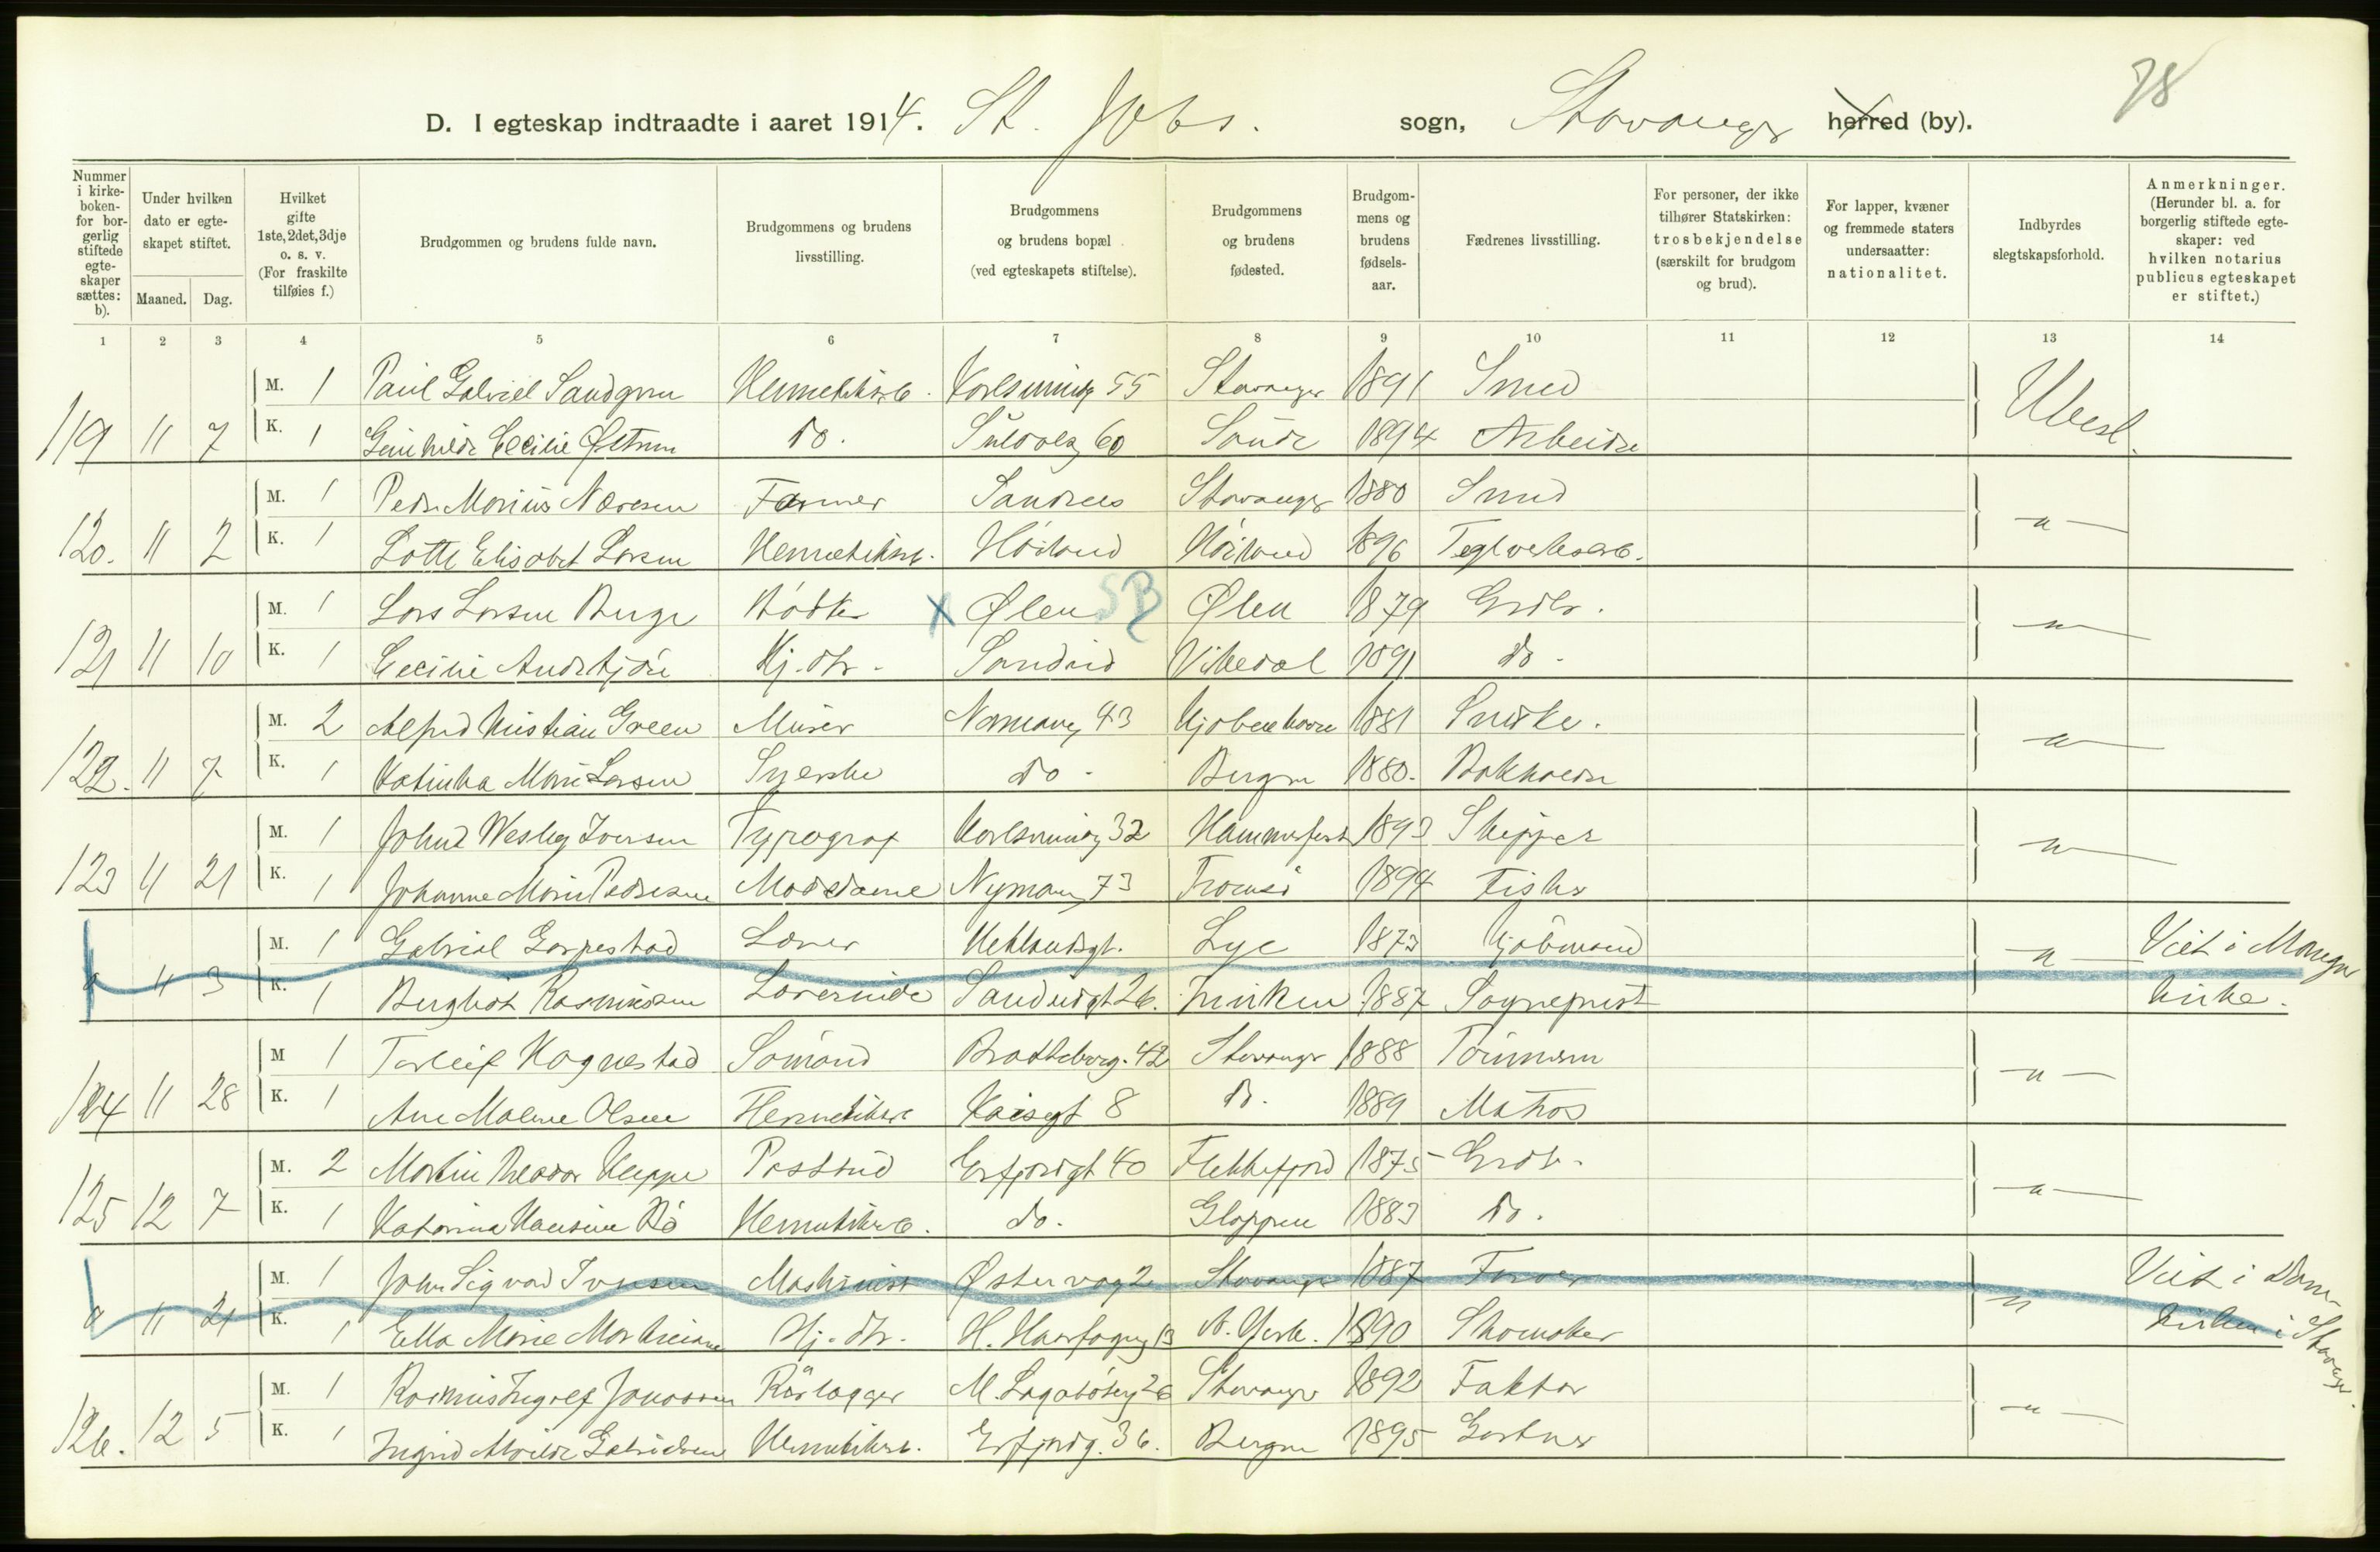 78
D. I egteskap indtraadte i aaret 1914. St. Johs. sogn, Stavanger herred (by).
Nummer i kirkeboken- for borgerlig stiftede egteskaper sættes: b).
Under hvilken dato er egteskapet stiftet.
Maaned. Dag.
Hvilket gifte 1ste, 2det, 3dje o. s. v. (For fraskilte tilføies f.)
Brudgommen og brudens fulde navn.
Brudgommens og brudens livsstilling.
Brudgommens og brudens bopæl (ved egteskapets stiftelse).
Brudgommens og brudens fødested.
Brudgommens og brudens fødselsaar.
Fædrenes livsstilling.
For personer, der ikke tilhører Statskirken: trosbekjendelse (særskilt for brudgom og brud).
For lapper, kvæner og fremmede staters undersaatter: nationalitet.
Indbyrdes slegtskapsforhold.
Anmerkninger. (Herunder bl. a. for borgerlig stiftede egteskaper: ved hvilken notarius publicus egteskapet er stiftet.)
1 2 3 4 5 6 7 8 9 10 11 12 13 14
M. 1 Paul Gabriel Sandgren Hermetikarb. Karlsminneg 55 Stavanger 1891 Smed Ubesl.
119 11 7 K. 1 Gunhilde Cecilie do. Suldalsg 60 Saude 1894 Arbeider
M. 1 Peder Marius Næresen Farmer Sandnes Stavanger 1880 Smed -"-
120. 11 2 K. 1 Lotte Elisabet Larsen Hermetikarb. Høiland Høiland 1896 Teglverksarb.
M. 1 Lars Larsen Berge Bødker X Ølen SB Ølen 1879 Grdbr. -"-
121 11 10 K. 1 Cecilie Hj. dtr. Sandeid Vikedal 1891 do.
M. 2 Alfred Kristian Green Murer Normannsg 43 Kjøbenhavn 1881 Snedker. -"-
122. 11 7 K. 1 Katinka Marie Larsen Syerske do - Bergen 1880. Bokholder
M. 1 John Wesley Iversen Typograf Karlsminneg 32 Hammerfest 1893 Skipper -"-
123 11 21 K. 1 Johanne Marie Pedersen Nymansv 73 Tromsø 1894 Fisker
M. 1 Gabriel Garpestad Lærer Hetlandsgt. Lye 1873 Kjøbmand -"- Viet i Mangor
a 11 3 K. 1 Bergliot Rasmussen Lærerinde Sandvigt 26. 1887 Sogneprest kirke.
M 1 Torleif Hognestad Sømand Bratteborg. 42 Stavanger 1888 Tømmerm -"-
124 11 28 K. 1 Ane Malene Olsen Hermetikarb Kaisgt 8 do. 1889 Matros
M. 2 Martin Teodor Kleppe Postbud Erfjordgt 40 Flekkefjord 1875 Grdbr. -"-
125 12 7 K. 1 Katarina Hansine Bø Hermetikarb. do. Gloppen 1883 do.
M. 1 John Sigvard Iversen Maskinist Østervåg 2 Stavanger 1887 Farver " Viet i Dom-
a 11 21 K. 1 Ella Marie Martiniane Hj. dtr. H. Haarfagreg 13 N. York. 1890 Skomaker kirken i Stavanger.
M. 1 Rasmus Ingolf Jonassen Rørlægger M. Lagabøterg 26 Stavanger 1892 Faktor -"-
126. 12 5 K. 1 Ingrid Alvilde Gabrielsen Hermetikarb. Erfjordg. 36. Bergen 1895 Gartner